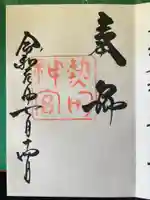 奉拝
熱田
神宮
令和 年 月十四日